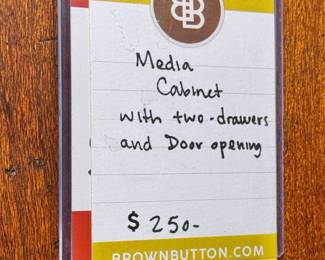 BB
Media
Cabinet
with two-drawers
and Door opening
$ 250-
BROWNBUTTON.COM